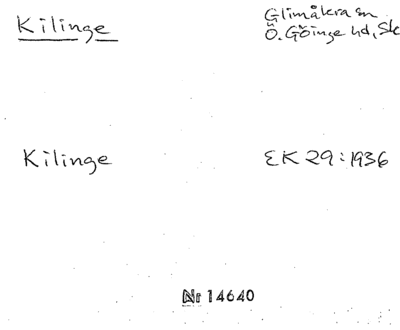 Kilinge
Glimåkra sn
Ö. Göinge hd, Sk
Kilinge
EK 29:1936
Nr 14640